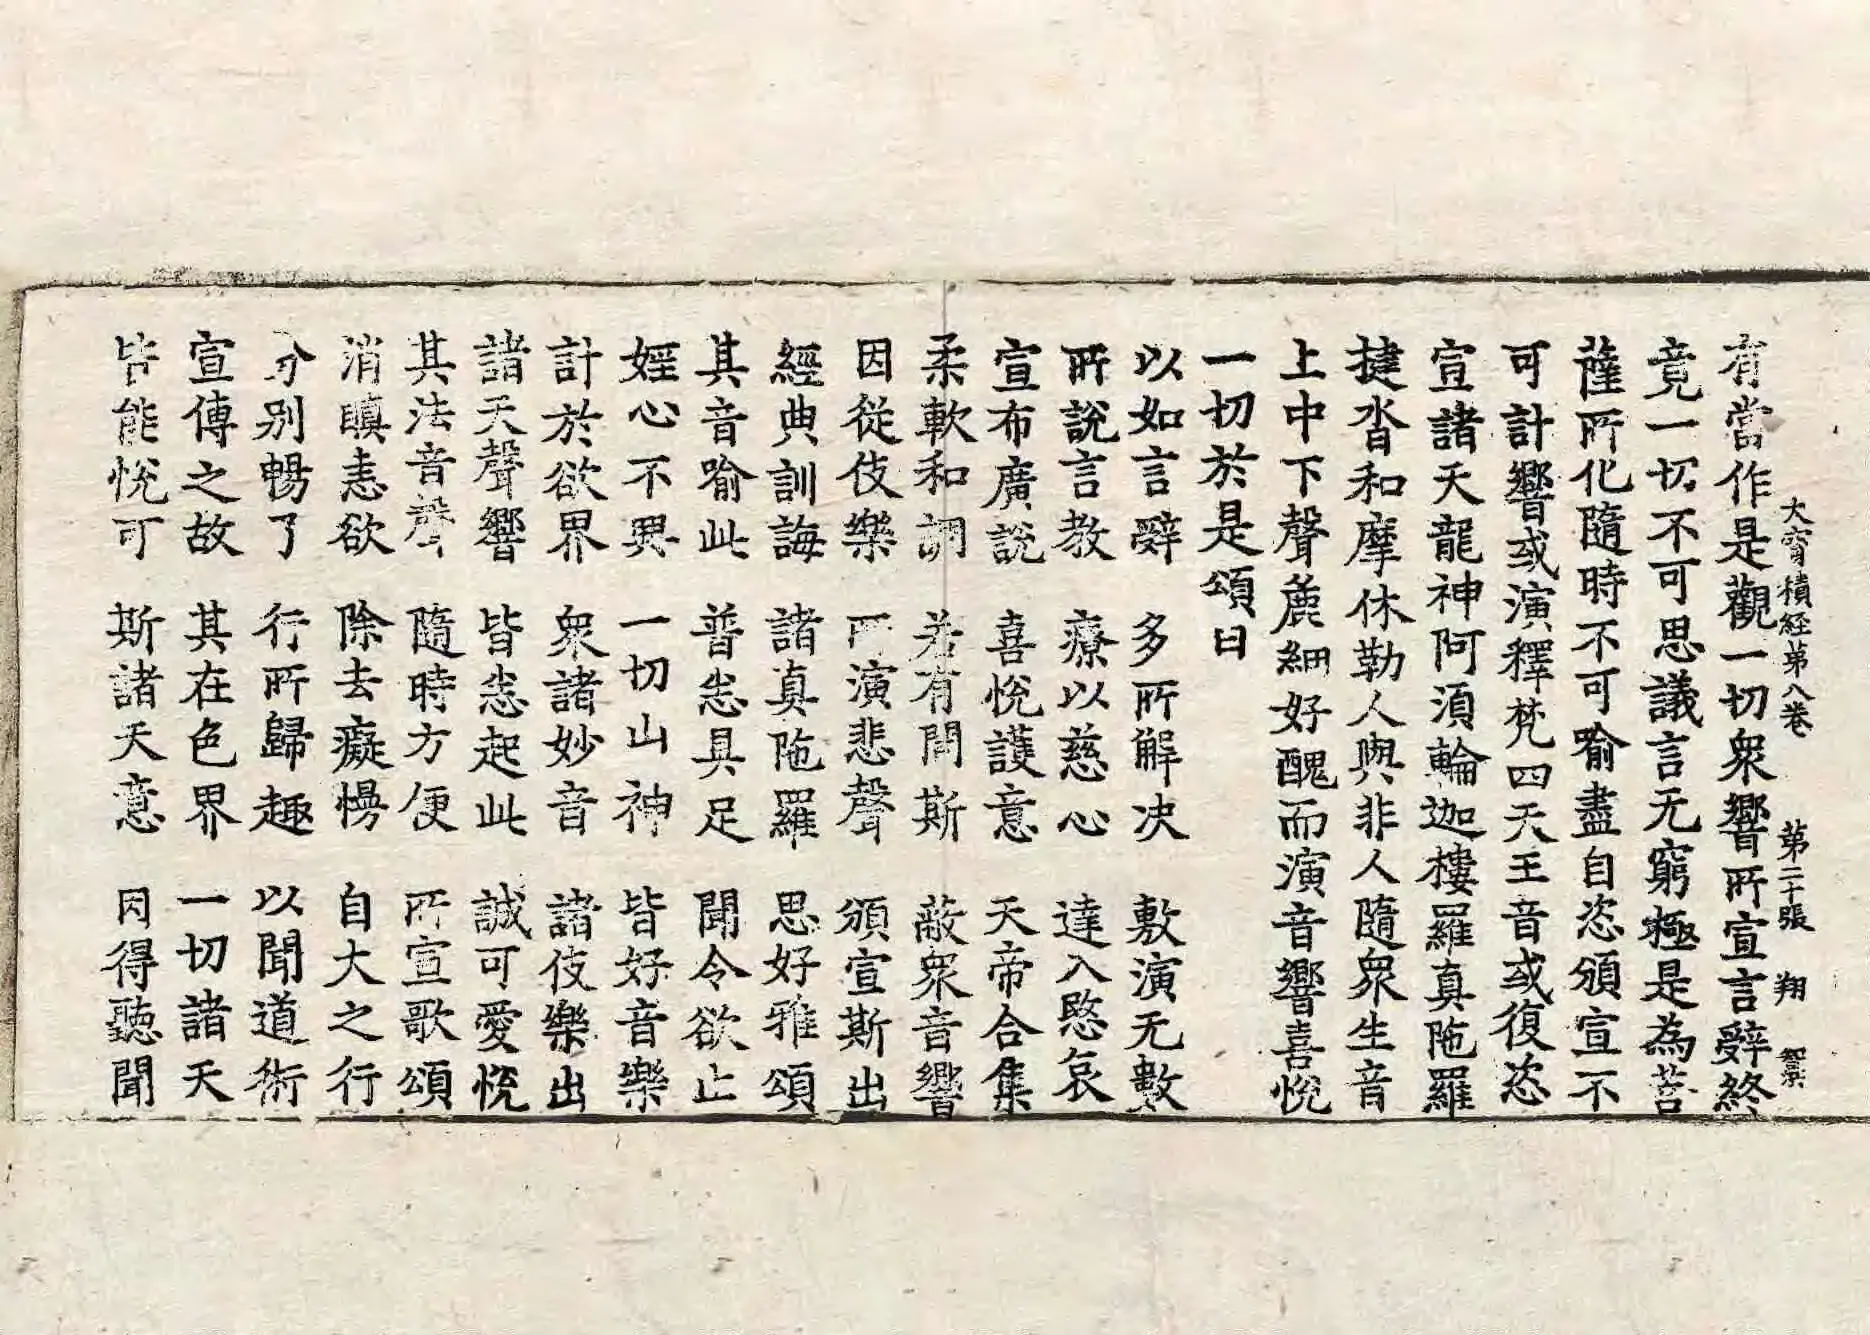 大寳積経第八卷 第二十張 翔
有當作是觀一切衆響所宣言辭終
竟一切不可思議言无窮極是為菩
薩所化隨時不可喻盡自恣頒宣不
可計響或演釋梵四天王音或復恣
宣諸天龍神阿須輪迦樓羅真陁羅
揵沓和摩休勒人與非人隨衆生音
上中下聲麁細好醜而演音響喜悅
一切於是頌曰
以如言辭 多所解决 敷演无數
所說言教 療以慈心 達入愍哀
宣布廣說 喜悅護意 天帝合集
柔軟和調 若有聞斯 蔽衆音響
因從伎樂 所演悲聲 頒宣斯出
經典訓誨 諸真陁羅 思好雅頌
其音喻此 普悉具足 聞令欲止
婬心不異 一切山神 皆好音樂
計於欲界 衆諸妙音 諸伎樂出
諸天聲響 皆悉起此 誠可愛悅
其法音聲 隨時方便 所宣歌頌
消瞋恚欲 除去癡慢 自大之行
分别暢了 行所歸趣 以聞道術
宣傳之故 其在色界 一切諸天
皆能悅可 斯諸天意 因得聽聞